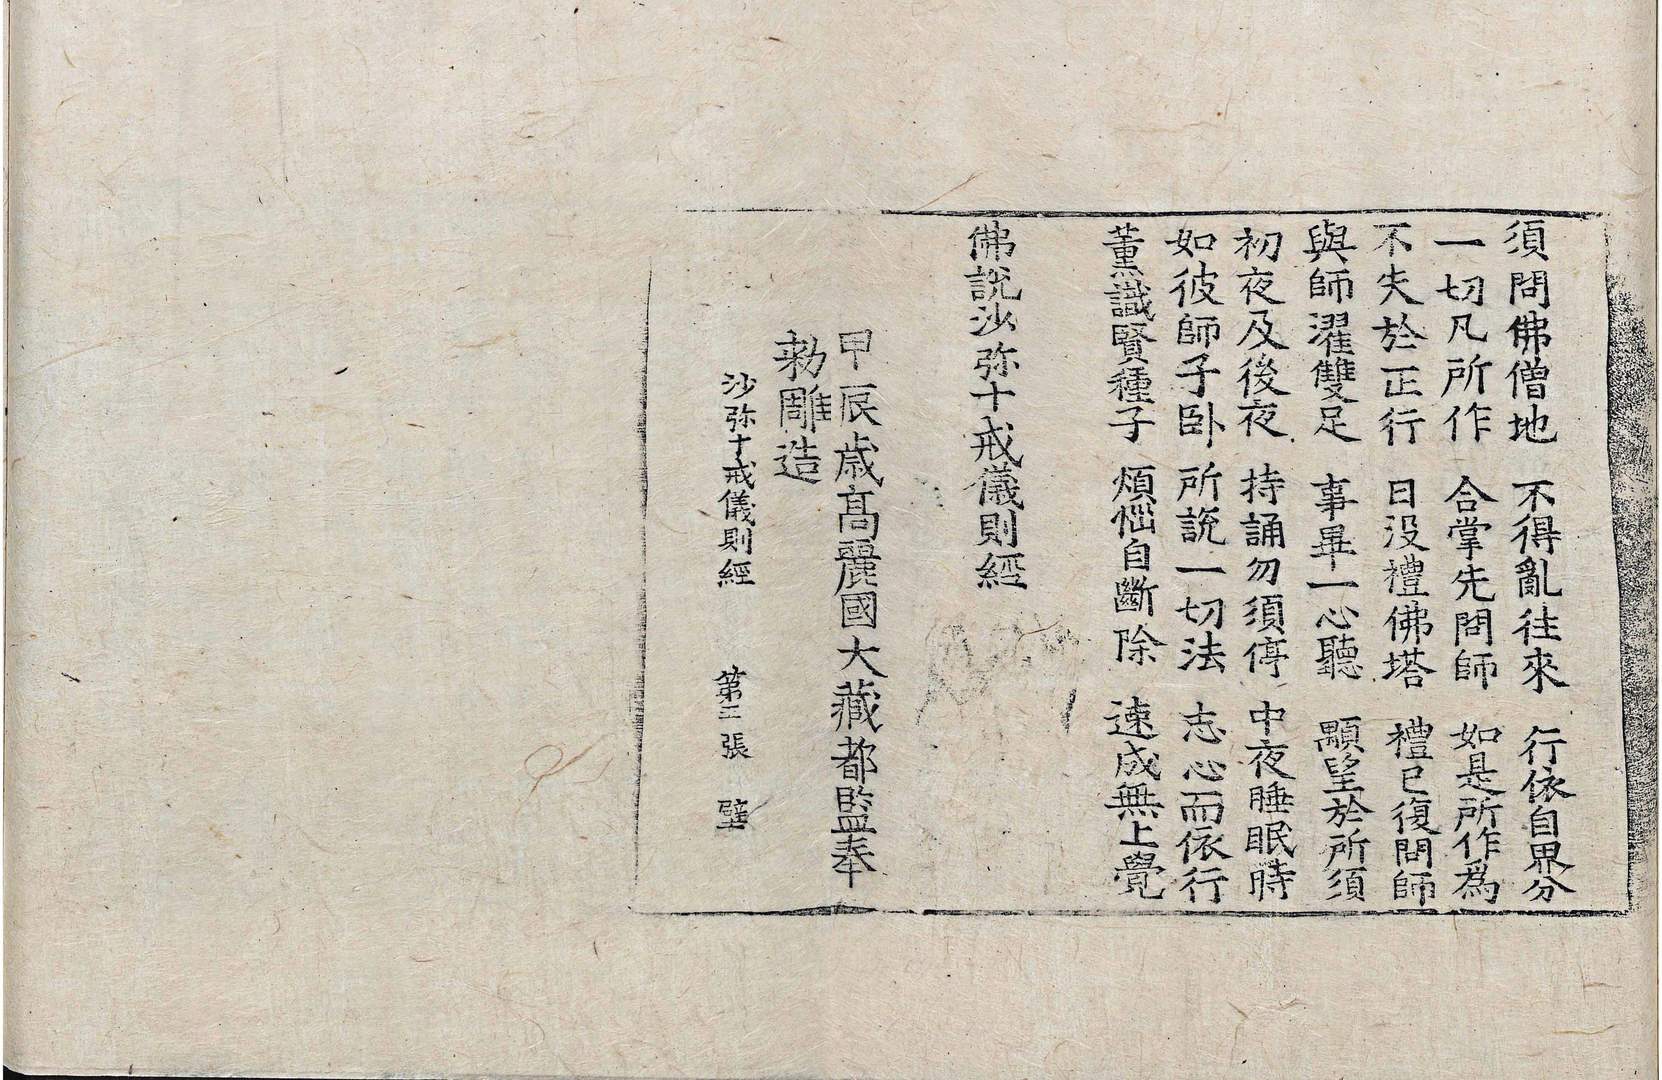 須問佛僧地 不得亂往來 行依自界分
一切凡所作 合掌先問師 如是所作爲
不失於正行 日没禮佛塔 禮已復問師
與師濯雙足 事畢一心聽 顒望於所須
初夜及後夜 持誦勿須停 中夜睡眠時
如彼師子卧 所說一切法 志心而依行
薰識賢種子 煩惱自斷除 速成無上覺
佛說沙弥十戒儀則經
甲辰歲高麗國大藏都監奉
勑雕造
沙弥十戒儀則經 第二張 壁